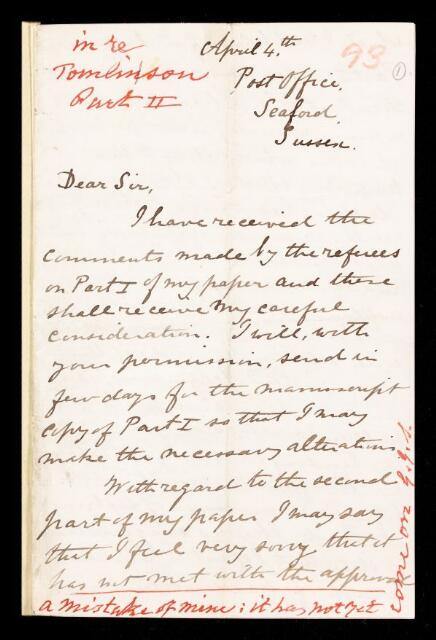 in re
Tomlinson
Part II
93
1
April 4.th
Post Office,
Seaford,
Sussex.
Dear Sir,
I have received the
comments made by the referees
on Part I of my paper and these
shall receive my careful
consideration. I will, with
your permission, send in
few days for the manuscript
copy of Part I so that I may
make the necessary alterations
With regard to the second
part of my paper I may say
that I feel very sorry that it
has not met with the approval
a mistake of mine: it has not yet
come on G.G.S.